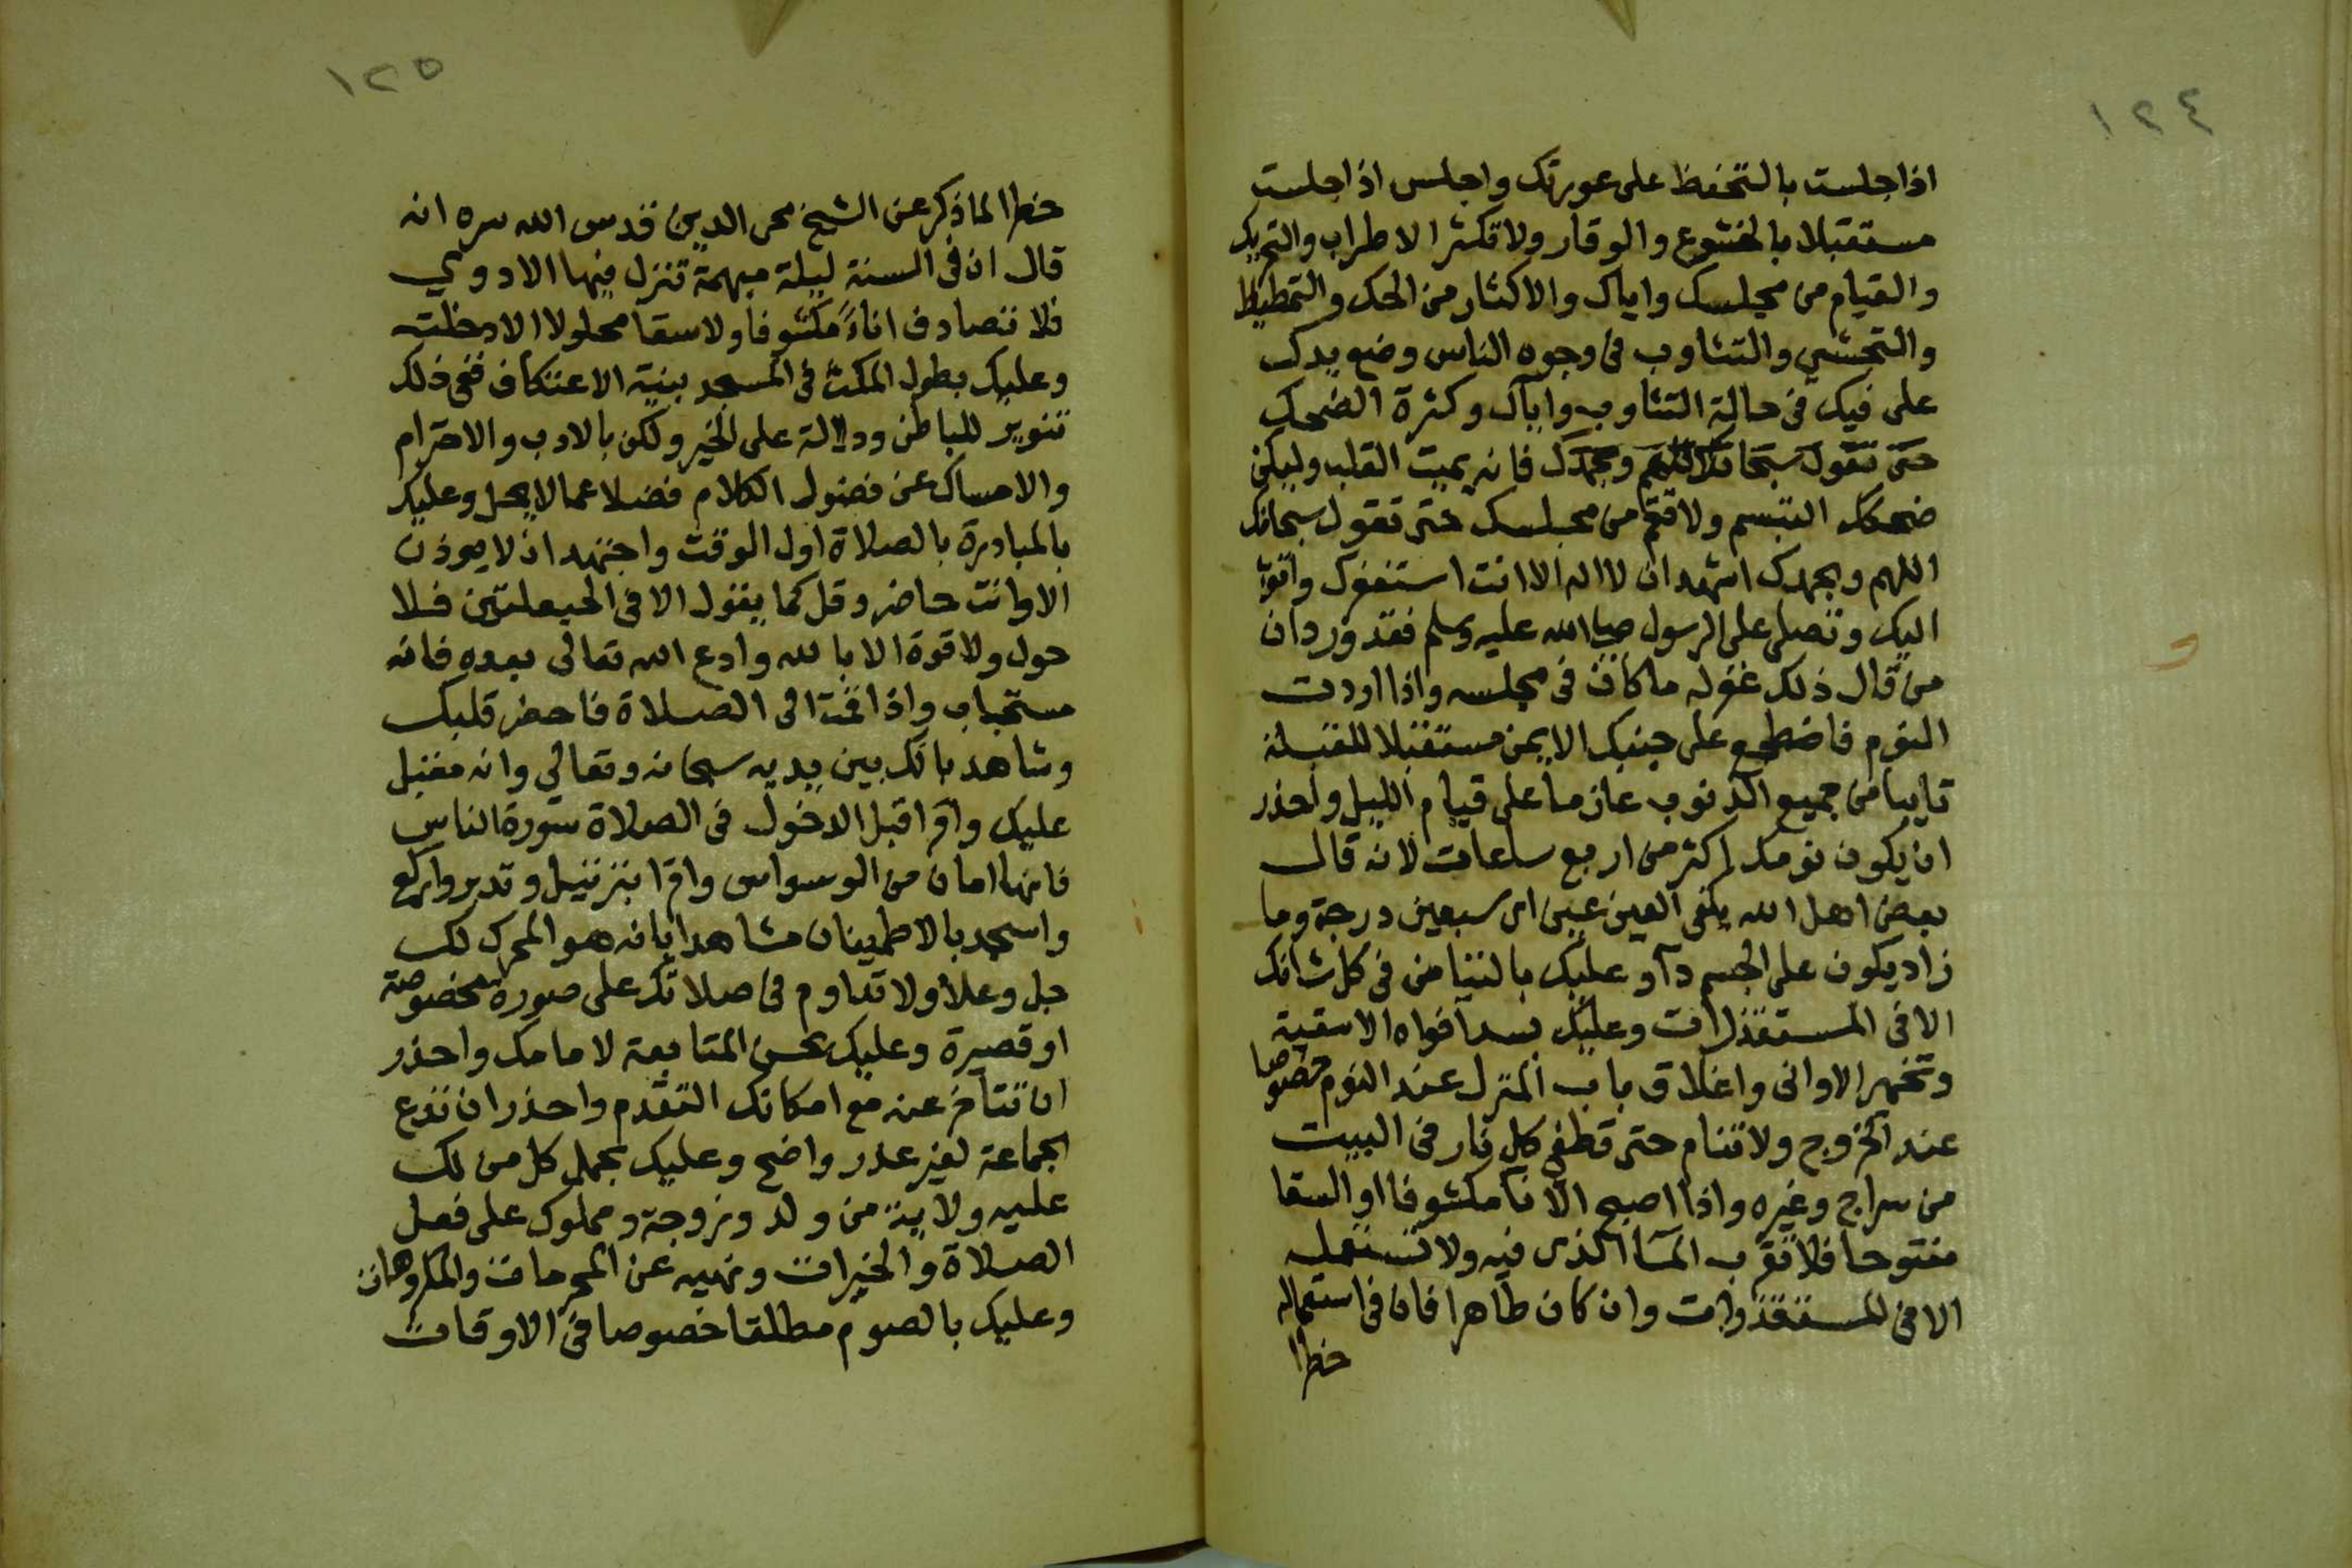 ١٢٤
اذا جلست بالتحفظ على عورتك واجلس اذا جلست
مستقبلا بالخشوع والوقار ولا تكثر الاطراب والتحريك
والقيام من مجلسك واياك والاكثار من الحك والتمطيط
والتجشي والتثاوب فى وجوه الناس وضع يدك
على فيك فى حالة التثاوب واياك وكثرة الضحك
حتى تقول سبحانك اللهم وبحمدك فانه يميت القلب وليكن
ضحكك التبسم ولا تقم من مجلسك حتى تقول سبحانك
اللهم وبحمدك اشهد ان لا اله الا انت استغفرك واتوب
اليك وتصلى على الرسول صلى الله عليه وسلم فقد ورد ان
من قال ذلك غفر له ما كان فى مجلسه واذا اردت
النوم فاضطجع على جنبك الايمن مستقبلا للقبلة
تايبا من جميع الذنوب عازما على قيام الليل واحذر
ان يكون نومك اكثر من اربع ساعات لانه قال
بعض اهل الله يكفى العين عين اى سبعين درجة وما
زاد يكون على الجسم دآ وعليك بالتيامن فى كل شانك
الا فى المستقذرات وعليك بسد آفواه الاسقية
وتخمير الاوانى واغلاق باب المنزل عند النوم خصوصا
عند الخروج ولا تنام حتى تطفى كل نار فى البيت
من سراج وغيره واذا اصبح الانآ مكشوفا او السقا
مفتوحا فلا تقرب المآ الذى فيه ولا تستعمله
الا فى المستقذرات وان كان طاهرا فان فى استعماله
خطرا
١٢٥
خطرا لما ذكر عن الشيخ محى الدين قدس الله سره انه
قال ان فى السنة ليلة مبهمة تنزل فيها الادوي
فلا تصادف اناءً مكشوفا ولا سقا محلولا الا دخلته
وعليك بطول المكث فى المسجد بنية الاعتكاف ففى ذلك
تنوير للباطن ودلالة على الخير ولكن بالادب والاحترام
والامساك عن فضول الكلام فضلا عما لا يحل وعليك
بالمبادرة بالصلاة اول الوقت واجتهد ان لا يوذن
الا وانت حاضر وقل كما يقول الا فى الحيعلتين فلا
حول ولا قوة الا بالله وادع الله تعالى بعده فانه
مستجاب واذا قمت الى الصلاة فاحضر قلبك
وشاهد بانك بين يديه سبحانه وتعالي وانه مقبل
عليك واقرا قبل الدخول فى الصلاة سورة الناس
فانها امان من الوسواس واقرا بترتيل وتدبر واركع
واسجد بالاطمينان مشاهدا بانه هو المحرك لك
جل وعلا ولا تداوم فى صلاتك على صورة مخصوصة
او قصيرة وعليك بحسن المتابعة لامامك واحذر
ان تتأخر عنه مع امكانك التقدم واحذر ان تدع
الجماعة لغير عذر واضح وعليك بحمل كل من لك
عليه ولاية من ولد وزوجة ومملوك على فعل
الصلاة والخيرات ونهيه عن المحرمات والمكروهات
وعليك بالصوم مطلقا خصوصا فى الاوقات